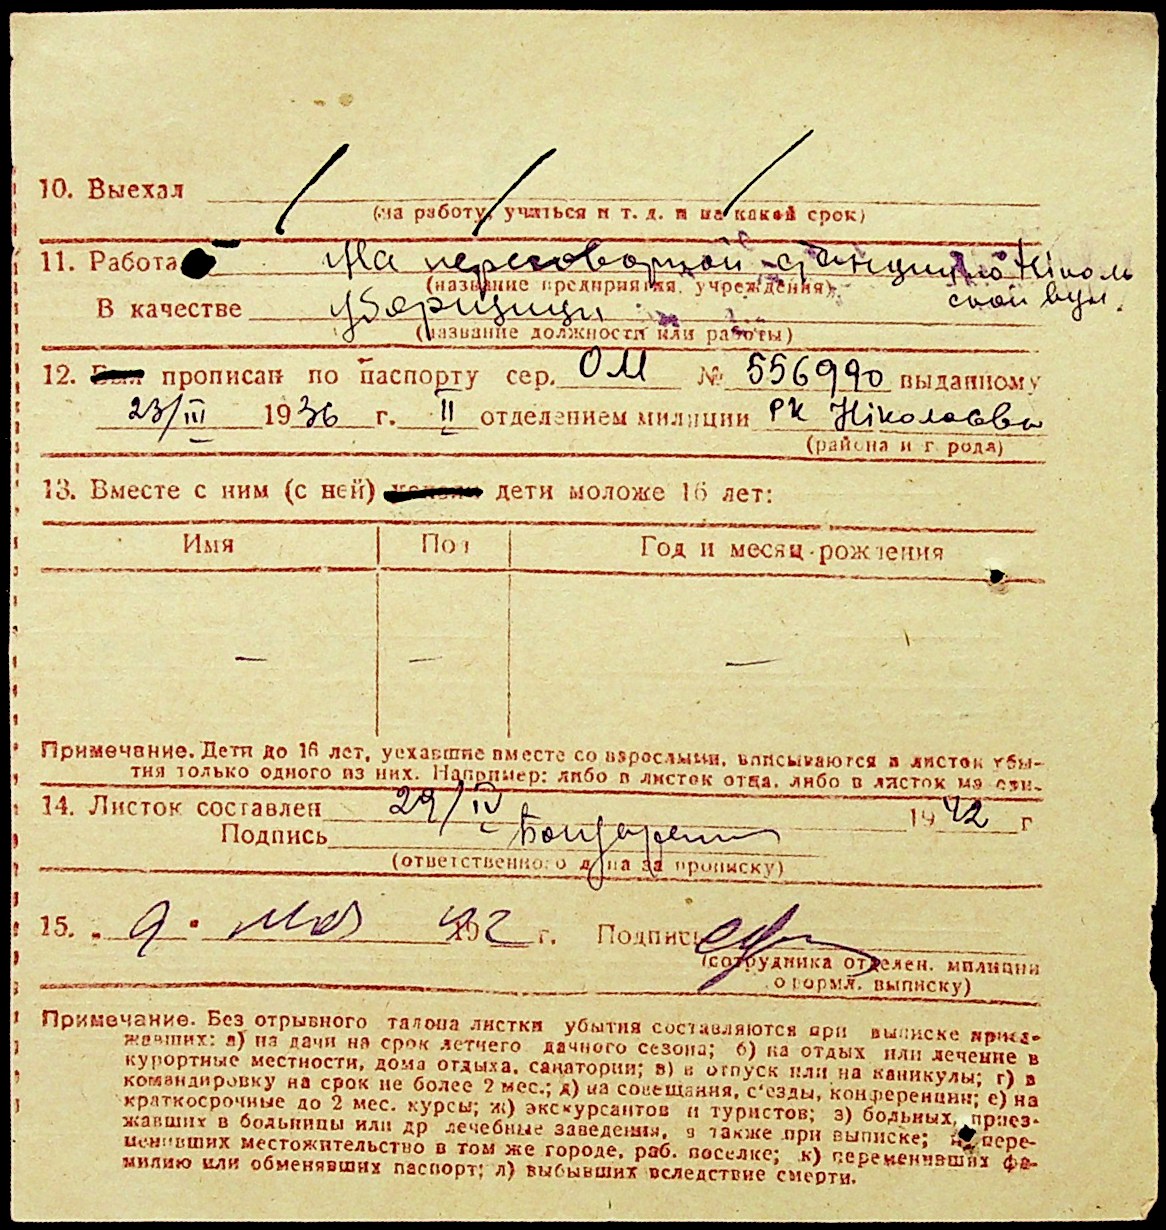 10. Выехал
(на работу, учиться и т. д. и на какой срок)
11. Работа На переговорной станции по Нікольской вул.
(название предприятия, учреждения)
В качестве уборщицы
(название должности или работы)
12. Был прописан по паспорту сер. ОМ № 556990 выданному
23/III 1936 г. II отделением милиции РК Ніколаева
(района и города)
13. Вместе с ним (с ней) дети моложе 16 лет:
Имя Пол Год и месяц рождения
— — —
Примечание. Дети до 16 лет, уехавшие вместе со взрослыми, вписываются в листок убы-
тия только одного из них. Например: либо в листок отца, либо в листок ма
14. Листок составлен 29/IV 1942 г
Подпись Бондаренко
(ответственного лица за прописку)
15. 9. мая 1942 г. Подпись
(сотрудника отделен. милиции
оформл. выписку)
Примечание. Без отрывного талона листки убытия составляются при выписке приез-
жавших: а) на дачи на срок летнего дачного сезона; б) на отдых или лечение в
курортные местности, дома отдыха, санатории; в) в отпуск или на каникулы; г) в
командировку на срок не более 2 мес.; д) на совещания, с'езды, конференции; е) на
краткосрочные до 2 мес. курсы; ж) экскурсантов и туристов; з) больных, приез-
жавших в больницы или др лечебные заведения, а также при выписке; и) пере-
менивших местожительство в том же городе, раб. поселке; к) переменивших фа-
милию или обменявших паспорт; л) выбывших вследствие смерти.